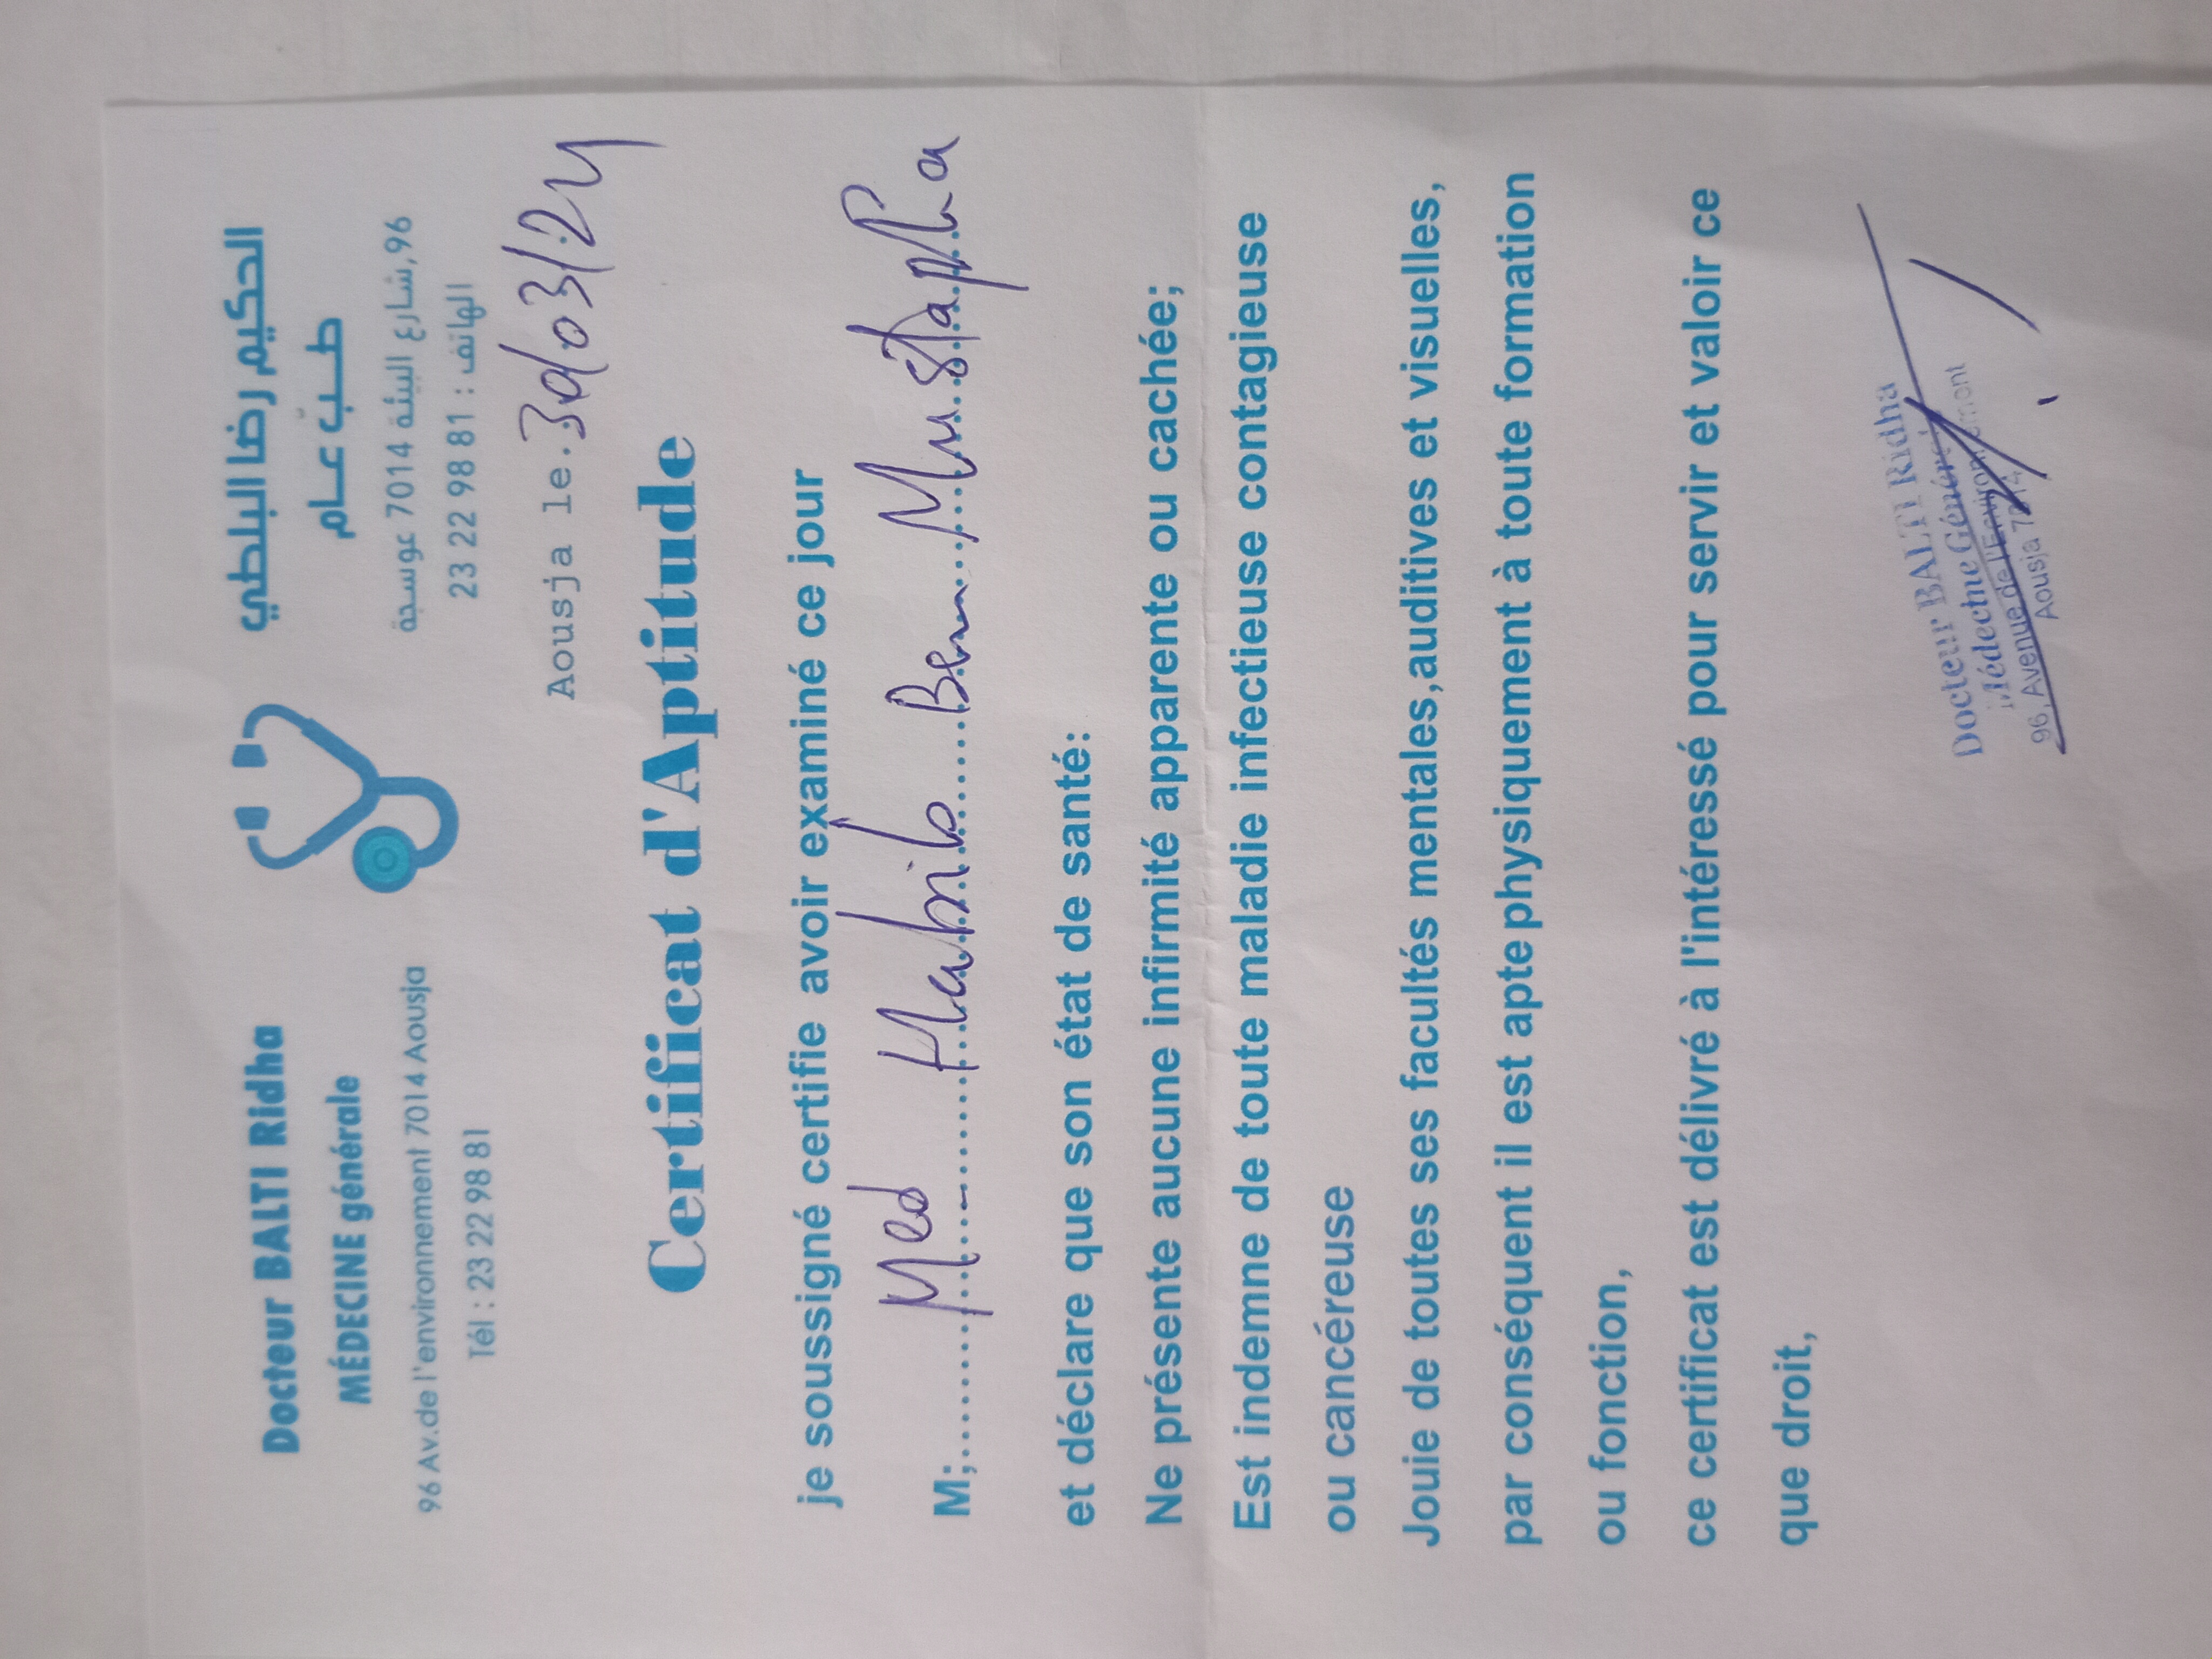 Docteur BALTI Ridha
MÉDECINE générale
96 Av.de l'environnement 7014 Aousja
Tél : 23 22 98 81
الحكيم رضا البلطي
طـبّ عــام
96,شارع البيئة 7014 عوسجة
الهاتف : 23 22 98 81
Aousja le.30/03/24
Certificat d'Aptitude
je soussigné certifie avoir examiné ce jour
M;......Med......Habib......Ben...Mustapha
et déclare que son état de santé:
Ne présente aucune infirmité apparente ou cachée;
Est indemne de toute maladie infectieuse contagieuse
ou cancéreuse
Jouie de toutes ses facultés mentales,auditives et visuelles,
par conséquent il est apte physiquement à toute formation
ou fonction,
ce certificat est délivré à l'intéressé pour servir et valoir ce
que droit,
Docteur BALTI Ridha
Médecine Générale
96, Avenue de l'Environnement
Aousja 7014